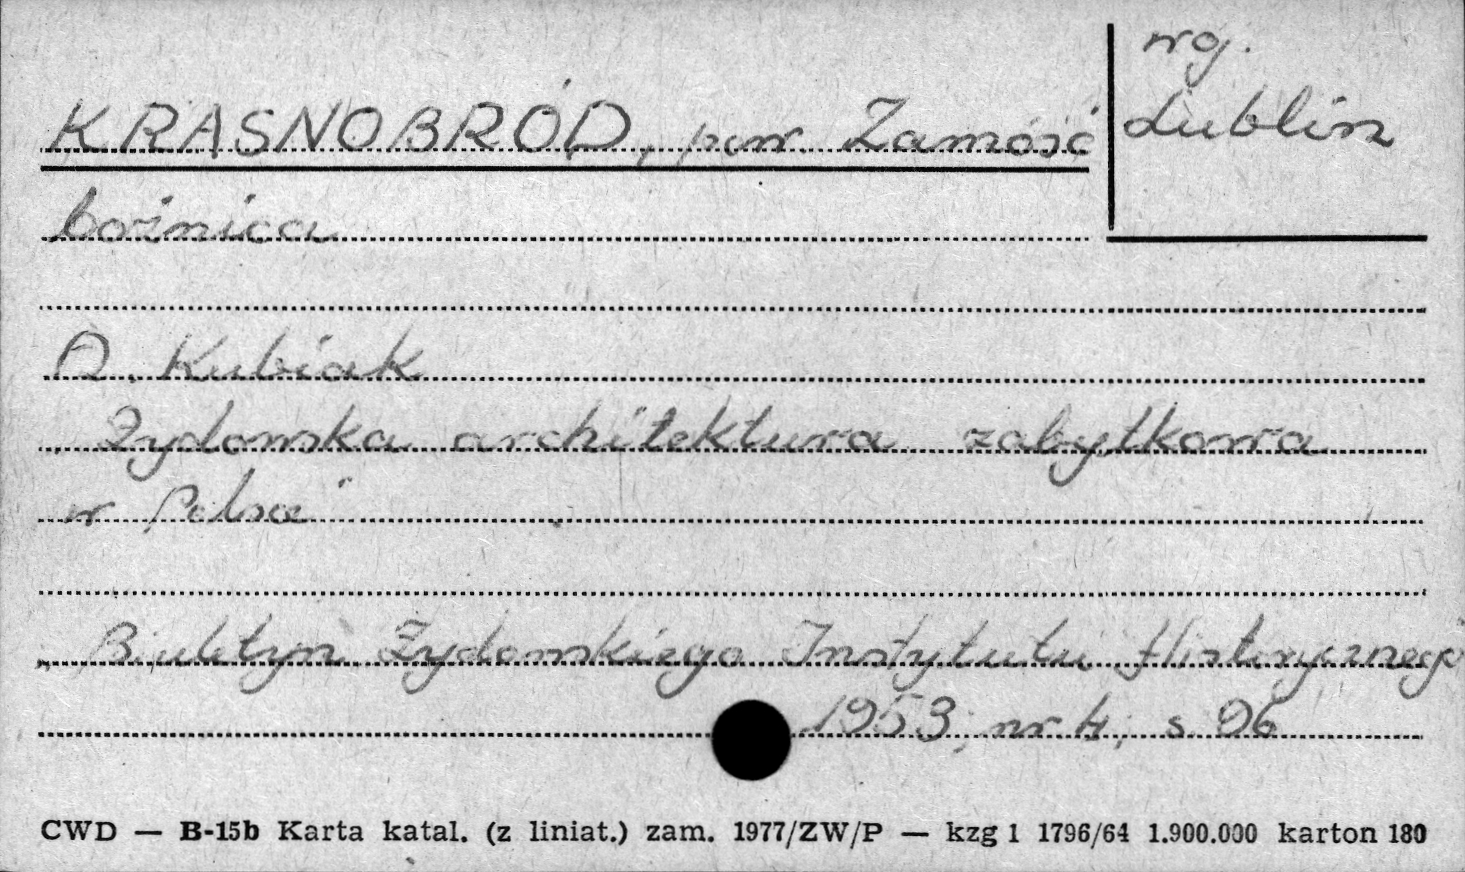 KRASNOBRÓD, pow. Zamość
woj.
Lublin
bożnica
A. Kubiak
„Żydowska architektura zabytkowa
w Polsce"
„Biuletyn Żydowskiego Instytutu Historycznego"
1953, nr 4, s. 96
CWD — B-15b Karta katal. (z liniat.) zam. 1977/ZW/P — kzg 1 1796/64 1.900.000 karton 180